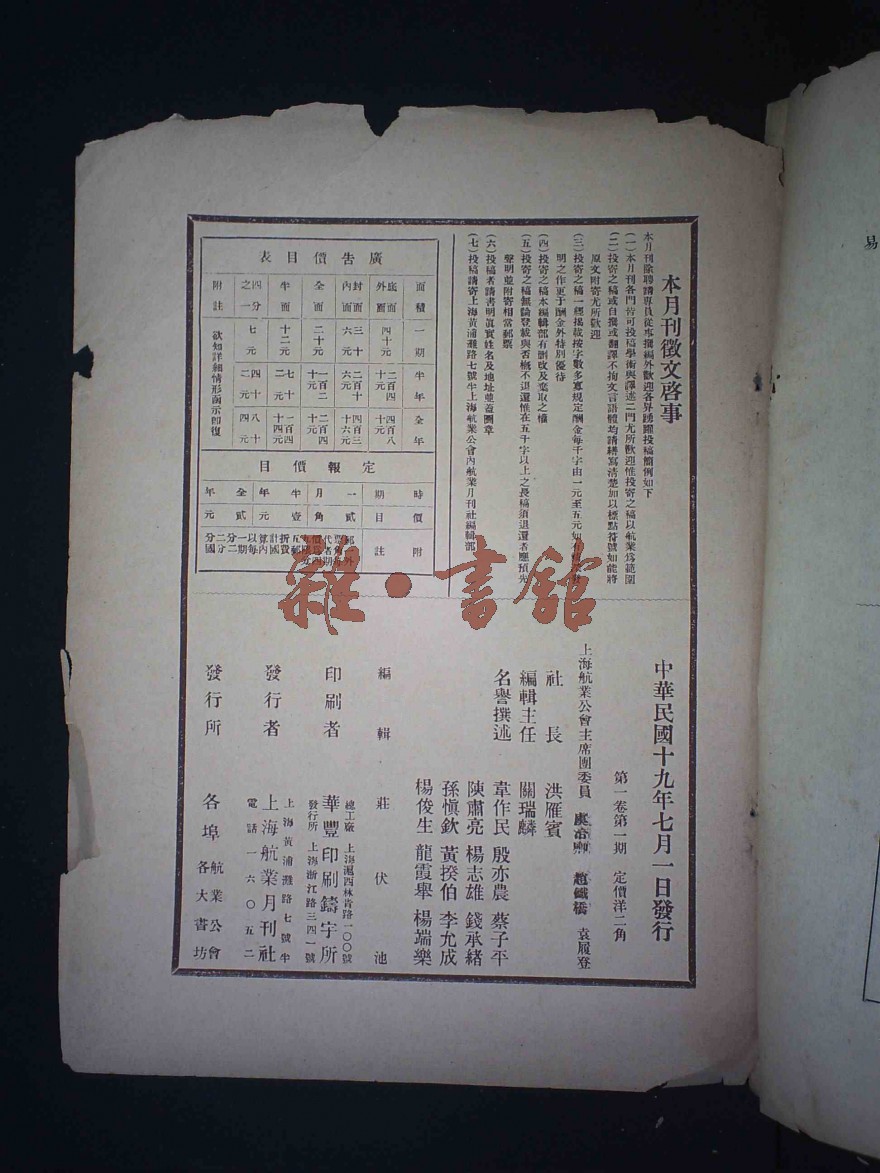 本月刊徵文啓事
本月刊除聘請專員從事撰編外歡迎各界踴躍投稿簡例如下
(一)本月刊各門皆可投稿學術與譯述二門尤所歡迎惟投寄之稿以航業爲範圍
(二)投寄之稿或自撰或翻譯不拘文言語體均請繕寫清楚加以標點符號如能將
原文附寄尤所歡迎
(三)投寄之稿一經揭載按字數多寡規定酬金每千字由一元至五元如有
明之作更于酬金外特別優待
(四)投寄之稿本編輯部有刪改及棄取之權
(五)投寄之稿無論登載與否概不退還惟在五千字以上之長稿須退還者應預先
聲明並附寄相當郵票
(六)投稿者請書明眞實姓名及地址並蓋圖章
(七)投稿請寄上海黃浦灘路七號半上海航業公會內航業月刊社編輯部
廣告價目表
面積 一期 半年 全年
底面外面 四十元 二百四十元 四百八十元
封面內面 三十六元 二百十六元 四百三十六元
全面 二十元 一百二十元 二百四十元
半面 十二元 七十二元 一百四十四元
四分之一 七元 四十二元 八十四元
附註 欲知詳細情形函示即復
定報價目
時期 一月 半年 全年
價目 貳角 壹元 貳元
附註
中華民國十九年七月一日發行
第一卷第一期 定價洋二角
上海航業公會主席團委員 虞洽卿 趙鐵橋 袁履登
社長 洪雁賓
編輯主任 關瑞麟
名譽撰述 韋作民 殷亦農 蔡子平
陳肅亮 楊志雄 錢承緒
孫愼欽 黃揆伯 李允成
楊俊生 龍霞舉 楊端樂
編輯 莊伏池
印刷者 華豐印刷鑄字所
總工廠 上海滬西林肯路一〇〇號
發行所 上海浙江路三四一號
發行者 上海航業月刊社
上海黃浦灘路七號半
電話一六〇五二
發行所 各埠 航業公會
各大書坊
雜·書館
易